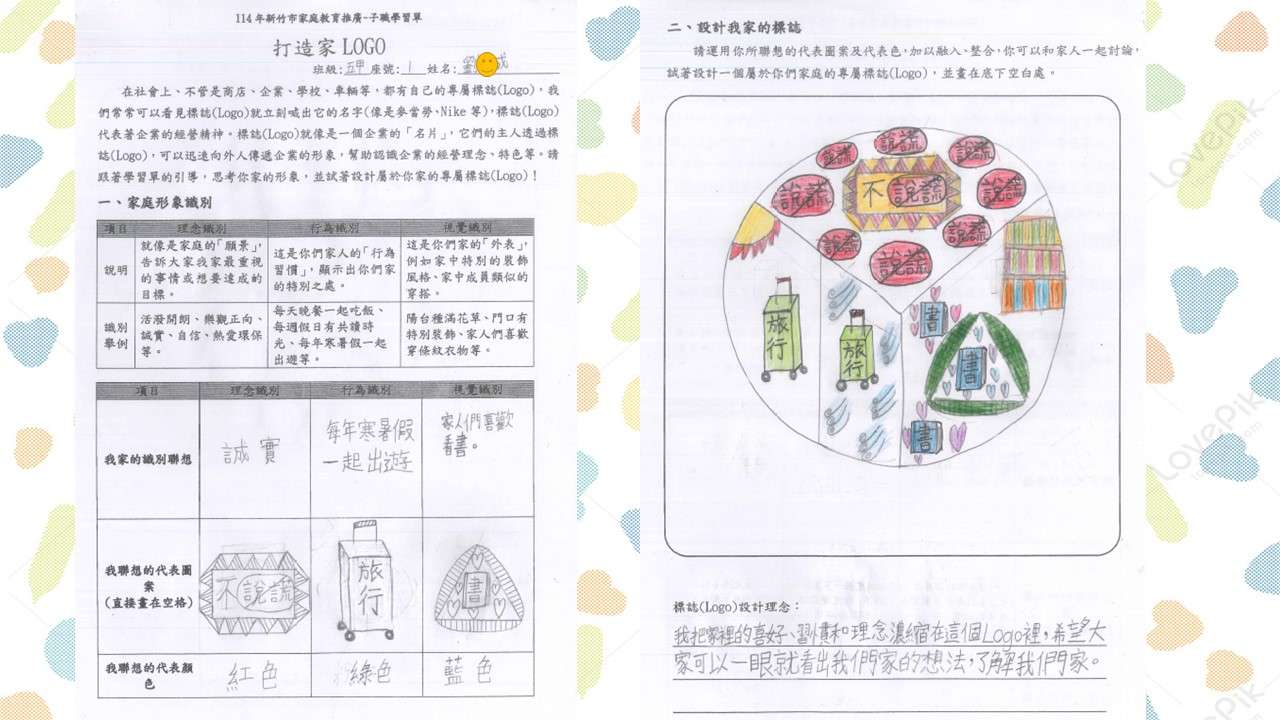 114年新竹市家庭教育推廣-子職學習單
打造家LOGO
班級:五甲 座號:1 姓名:劉 成
在社會上、不管是商店、企業、學校、車輛等,都有自己的專屬標誌(Logo),我
們常常可以看見標誌(Logo)就立刻喊出它的名字(像是麥當勞、Nike等),標誌(Logo)
代表著企業的經營精神。標誌(Logo)就像是一個企業的「名片」,它們的主人透過標
誌(Logo),可以迅速向外人傳遞企業的形象,幫助認識企業的經營理念、特色等。請
跟著學習單的引導,思考你家的形象,並試著設計屬於你家的專屬標誌(Logo)!
一、家庭形象識別
項目 理念識別 行為識別 視覺識別
說明
就像是家庭的「願景」,
告訴大家我家最重視
的事情或想要達成的
目標。
這是你們家人的「行為
習慣」,顯示出你們家
的特別之處。
這是你們家的「外表」,
例如家中特別的裝飾
風格、家中成員類似的
穿搭。
識別
舉例
活潑開朗、樂觀正向、
誠實、自信、熱愛環保
等。
每天晚餐一起吃飯、
每週假日有共讀時
光、每年寒暑假一起
出遊等。
陽台種滿花草、門口有
特別裝飾、家人們喜歡
穿條紋衣物等。
項目 理念識別 行為識別 視覺識別
我家的識別聯想
誠實
每年寒暑假
一起出遊
家人們喜歡
看書。
我聯想的代表圖
案
(直接畫在空格)
不說謊
旅行
書
我聯想的代表顏
色
紅色
綠色
藍色
二、設計我家的標誌
請運用你所聯想的代表圖案及代表色,加以融入、整合,你可以和家人一起討論,
試著設計一個屬於你們家庭的專屬標誌(Logo),並畫在底下空白處。
說謊
說謊
說謊
說謊
不說謊
說謊
說謊
說謊
說謊
旅行
旅行
書
書
書
標誌(Logo)設計理念:
我把家裡的喜好、習慣和理念濃縮在這個Logo裡,希望大
家可以一眼就看出我們家的想法,了解我們家。
Lovepik
Lovepik